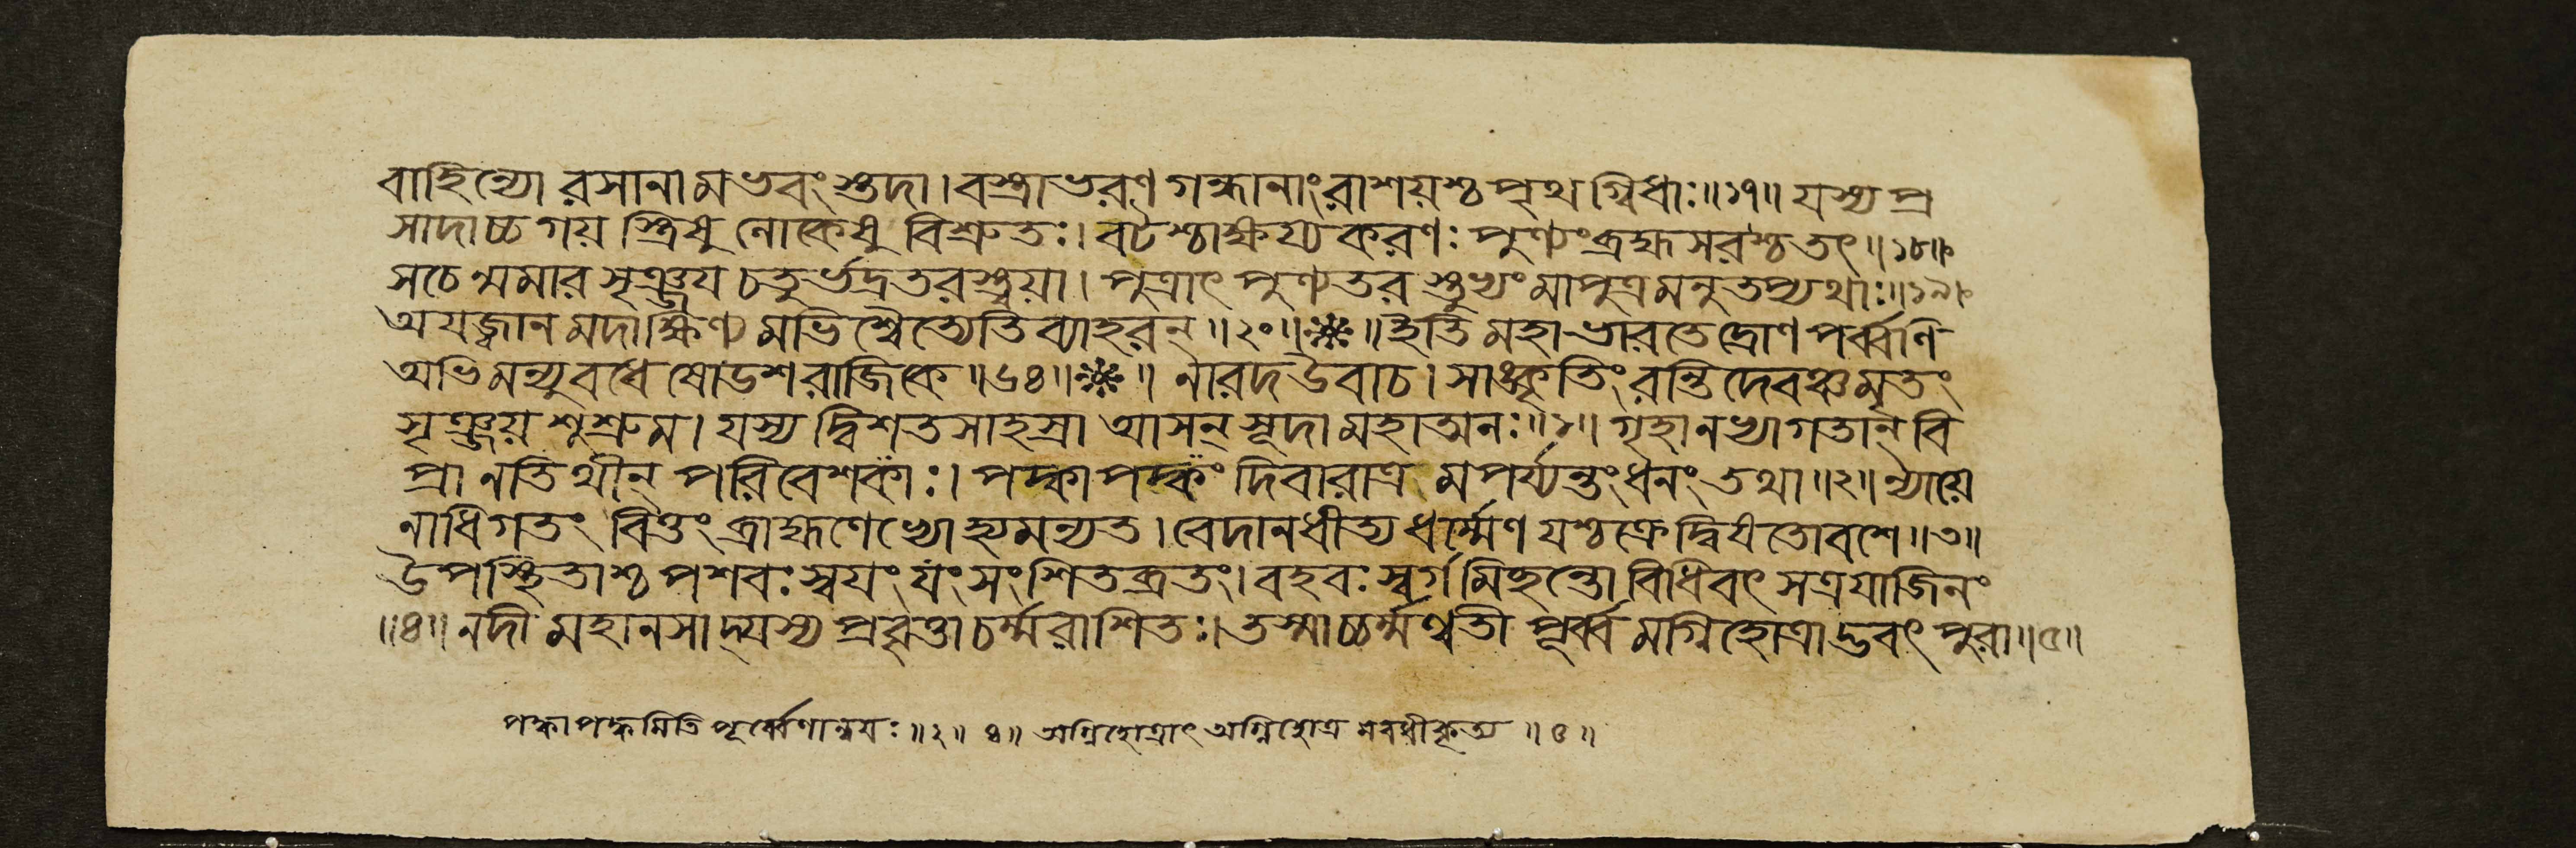 বাহিন্যো রসানামভবংস্তদা। বস্ত্রাভরণগন্ধানাং রাশয়শ্চ পৃথগ্বিধাঃ॥১৭॥ যস্য প্র
সাদাচ্চ গয়স্ত্রিষু লোকেষু বিশ্রুতঃ। বটশ্চাক্ষয্যকরণঃ পুণ্যং ব্রহ্মসরশ্চ তৎ॥১৮॥
সচেন্মমার সৃঞ্জয চতুর্ভদ্রতরস্ত্বয়া। পুত্রাৎ পুণ্যতরস্তুভ্যং মাপুত্রমনুতপ্যথাঃ॥১৯॥
অযজ্বানমদাক্ষিণ্যমভিশ্বৈত্যেতি ব্যাহরন্॥২০॥ ॥ ইতি মহাভারতে দ্রোণপর্ব্বণি
অভিমন্যুবধে ষোডশরাজিকে॥৬৪॥ ॥ নারদ উবাচ। সাঙ্কৃতিং রন্তিদেবঞ্চ মৃতং
সৃঞ্জয় শুশ্রুম। যস্য দ্বিশতসাহস্রা আসন্ সূদা মহাত্মনঃ॥১॥ গৃহানভ্যাগতান্ বি
প্রানতিথীন্ পরিবেশকাঃ। পক্কাপক্কং দিবারাত্র মপর্য্যন্তং ধনং তথা॥২॥ ন্যায়ে
নাধিগতং বিত্তং ব্রাহ্মণেভ্যো হ্যমন্যত। বেদানধীত্য ধর্ম্মেণ যশ্চক্রে দ্বিষতোবশে॥৩॥
উপস্থিতাশ্চ পশবঃ স্বযং যং সংশিতব্রতং। বহবঃ স্বর্গমিছন্তো বিধিবৎ সত্রযাজিনং
॥৪॥ নদী মহানসাদ্যস্য প্রবৃত্তা চর্ম্মরাশিতঃ। তস্মাচ্চর্ম্মণ্বতী পূর্ব্বমগ্নিহোত্রাদ্ভবৎ পুরা॥৫॥
পক্কাপক্কমিতি পূর্ব্বেণান্বযঃ॥২॥ ৪॥ অগ্নিহোত্রাৎ অগ্নিহোত্র মবধীকৃত্য॥৫॥